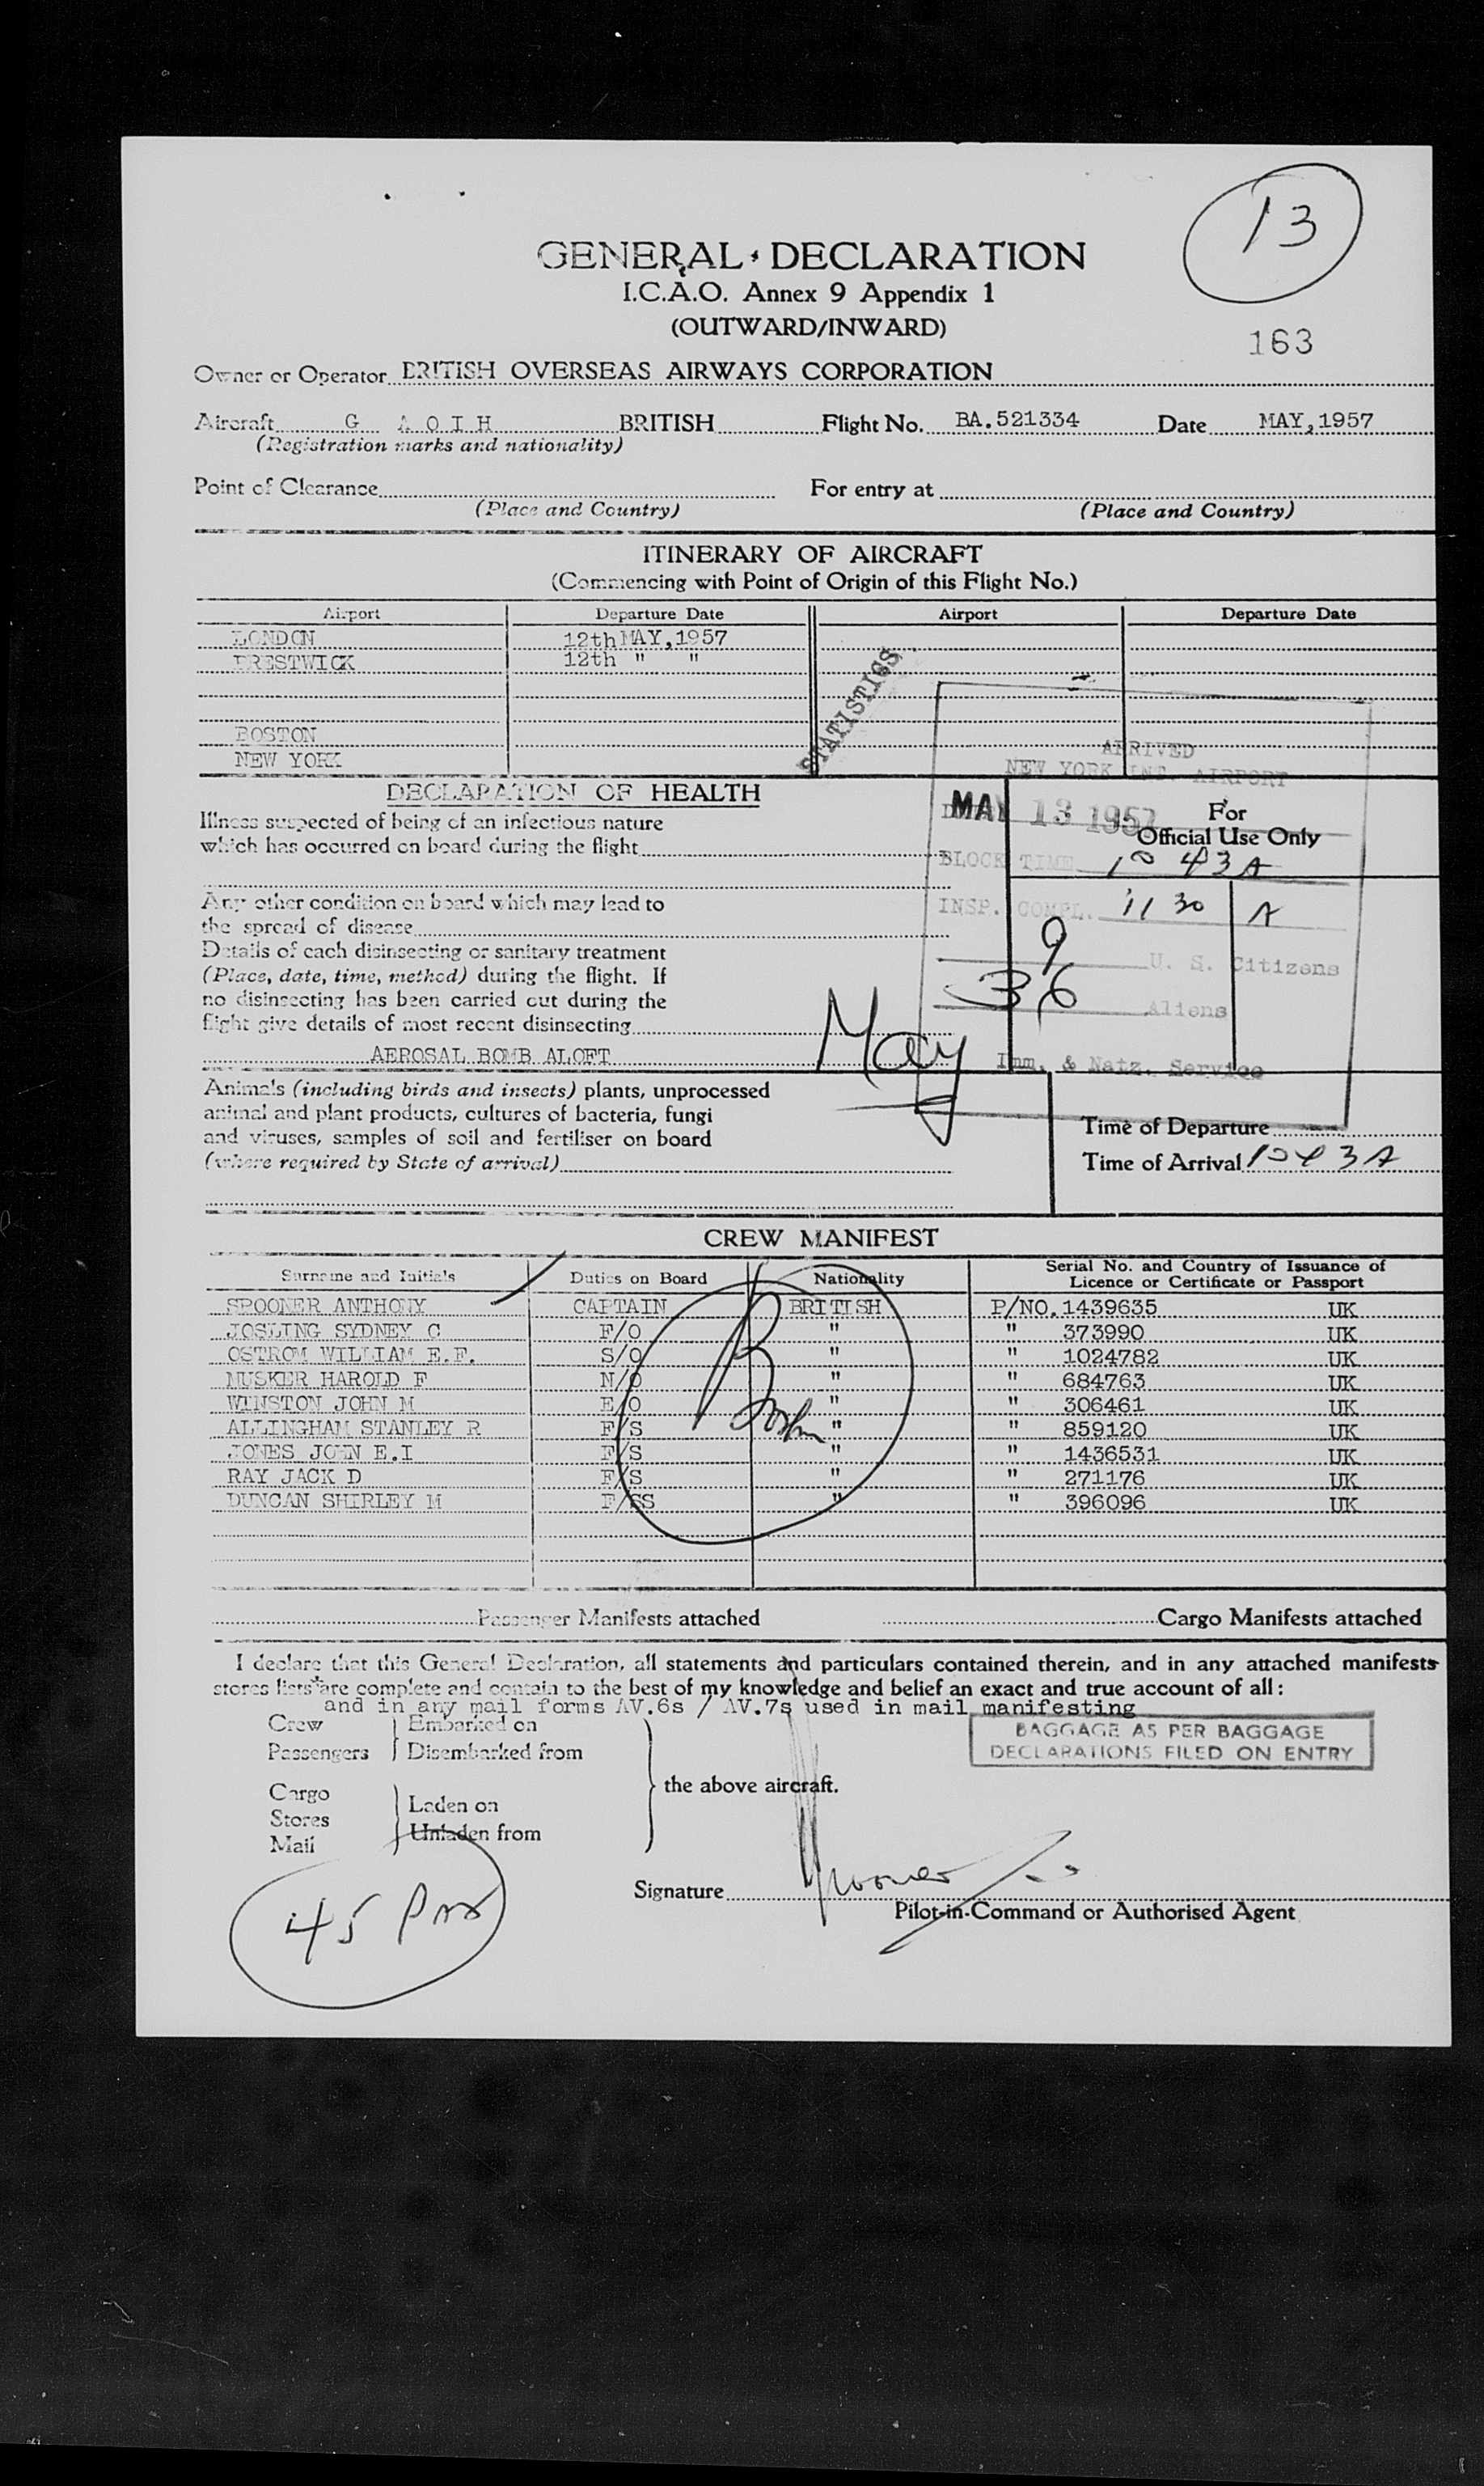 13
GENERAL DECLARATION
I.C.A.O. Annex 9 Appendix 1
(OUTWARD/INWARD)
163
Owner or Operator BRITISH OVERSEAS AIRWAYS CORPORATION
Aircraft G A O I H BRITISH Flight No. BA.521334 Date MAY, 1957
(Registration marks and nationality)
Point of Clearance For entry at
(Place and Country) (Place and Country)
ITINERARY OF AIRCRAFT
(Commencing with Point of Origin of this Flight No.)
Airport Departure Date Airport Departure Date
LONDON 12th MAY, 1957
PRESTWICK 12th " "
STATISTICS
BOSTON
NEW YORK
ARRIVED
NEW YORK INT. AIRPORT
DECLARATION OF HEALTH
MAY 13 1957
For
Official Use Only
Illness suspected of being of an infectious nature
which has occurred on board during the flight
BLOCK TIME 10 43 A
Any other condition on board which may lead to
the spread of disease
INSP. COMPL. 11 30 A
Details of each disinsecting or sanitary treatment
(Place, date, time, method) during the flight. If
no disinsecting has been carried out during the
flight give details of most recent disinsecting
9 U. S. Citizens
36 Aliens
AEROSAL BOMB ALOFT
May
Imm. & Natz. Service
Animals (including birds and insects) plants, unprocessed
animal and plant products, cultures of bacteria, fungi
and viruses, samples of soil and fertiliser on board
(where required by State of arrival)
Time of Departure
Time of Arrival 1043A
CREW MANIFEST
Surname and Initials Duties on Board Nationality Serial No. and Country of Issuance of
Licence or Certificate or Passport
SPOONER ANTHONY CAPTAIN BRITISH P/NO. 1439635 UK
JOSLING SYDNEY C F/O " " 373990 UK
OSTROM WILLIAM E.F. S/O " " 1024782 UK
MUSKER HAROLD F N/O " " 684763 UK
WINSTON JOHN M E/O " " 306461 UK
ALLINGHAM STANLEY R F/S " " 859120 UK
JONES JOHN E.I F/S " " 1436531 UK
RAY JACK D F/S " " 271176 UK
DUNCAN SHIRLEY M F/SS " " 396096 UK
Passenger Manifests attached Cargo Manifests attached
I declare that this General Declaration, all statements and particulars contained therein, and in any attached manifests
stores lists are complete and contain to the best of my knowledge and belief an exact and true account of all:
and in any mail forms AV.6s / AV.7s used in mail manifesting
Crew Embarked on
Passengers Disembarked from
BAGGAGE AS PER BAGGAGE
DECLARATIONS FILED ON ENTRY
Cargo
Stores
Mail
Laden on
Unladen from
the above aircraft.
45 Pax
Signature Spooner
Pilot-in-Command or Authorised Agent